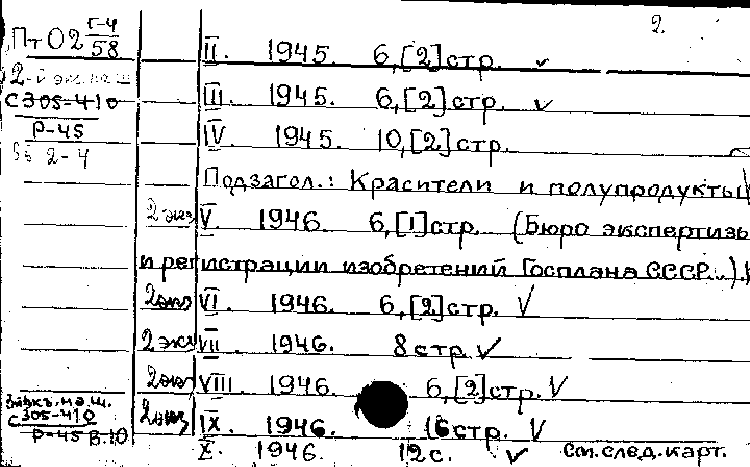 2.
Пт 02 Г-4/58
II. 1945. 6,[2]стр. ✓
2-й экз. на ш
С305-410
III. 1945. 6,[2]стр. ✓
Р-45
IV. 1945. 10,[2]стр.
2-4
Подзагол.: Красители и полупродукты
2 экз V. 1946. 6,[1]стр. (Бюро экспертизы
и регистрации изобретений Госплана СССР..).
2 экз VI. 1946. 6,[2]стр. ✓
2 экз VII. 1946. 8 стр ✓
2 экз VIII. 1946. 6,[2]стр. ✓
С305-410
2 экз IX. 1946. 16 стр. ✓
Р-45 В.10
X. 1946. 12 с. ✓ См. след. карт.